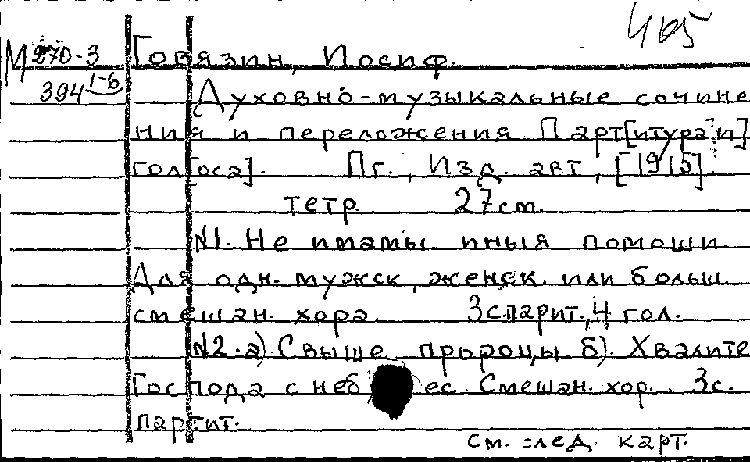 405
М 270-3 Говязин, Иосиф.
394 1-6
Духовно-музыкальные сочине
ния и переложения Парт[итура и]
гол[оса]. Пг., Изд. авт., [1915].
тетр. 27см.
N1. Не имамы иныя помощи
Для одн. мужск., женск. или больш.
смешан. хора 3с.парит., 4 гол.
N2. а) Свыше пророцы б). Хвалите
Господа с небес. Смешан. хор. 3с.
партит.
см. след. карт.